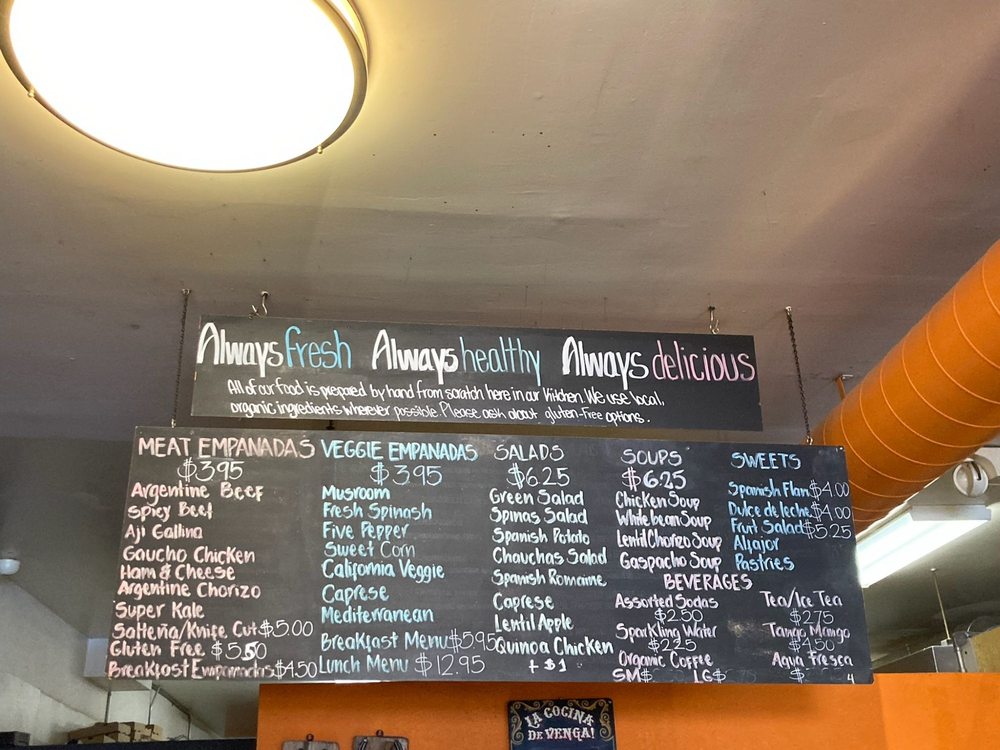 Always fresh Always healthy Always delicious
All of our food is prepared by hand from scratch here in our kitchen. We use local,
organic ingredients wherever possible. Please ask about gluten-free options.
MEAT EMPANADAS
$3.95
Argentine Beef
Spicy Beef
Aji Gallina
Gaucho Chicken
Ham & Cheese
Argentine Chorizo
Super Kale
Salteña/Knife Cut $5.00
Gluten Free $5.50
Breakfast Empanadas $4.50
VEGGIE EMPANADAS
$3.95
Musroom
Fresh Spinash
Five Pepper
Sweet Corn
California Veggie
Caprese
Mediterranean
Breakfast Menu $5.95
Lunch Menu $12.95
SALADS
$6.25
Green Salad
Spinas Salad
Spanish Potato
Chauchas Salad
Spanish Romaine
Caprese
Lentil Apple
Quinoa Chicken
+ $1
SOUPS
$6.25
Chicken Soup
White bean Soup
Lentil Chorizo Soup
Gaspacho Soup
SWEETS
Spanish Flan $4.00
Dulce de leche $4.00
Fruit Salad $5.25
Alfajor
Pastries
BEVERAGES
Assorted Sodas
$2.50
Sparkling Water
$2.25
Organic Coffee
SM$ LG$
Tea/Ice Tea
$2.75
Tango Mango
$4.50
Agua Fresca
$ 4
LA COCINA
DE VENGA!